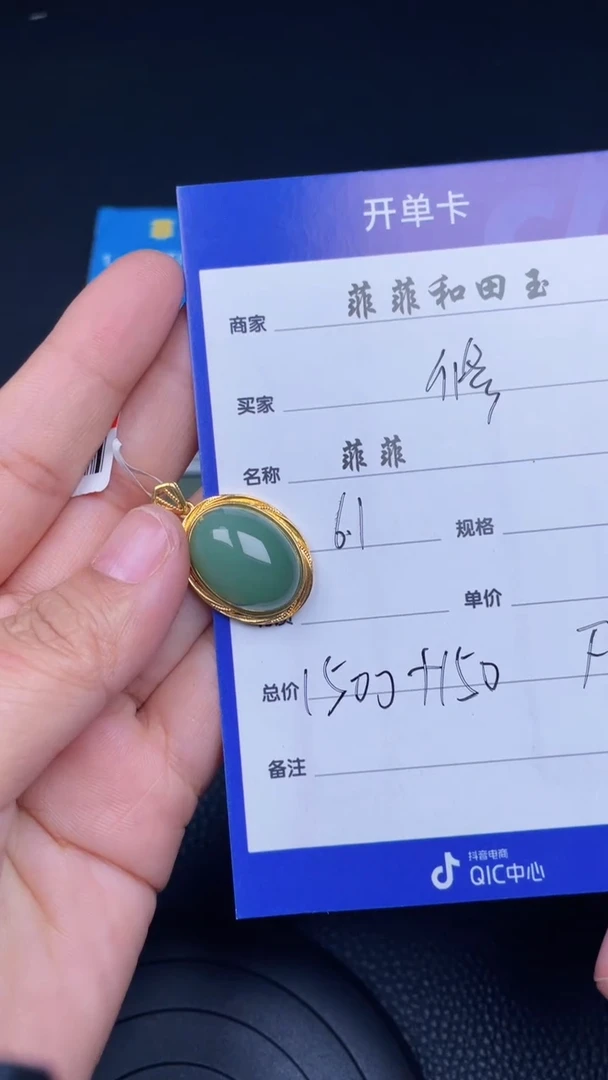 开单卡
商家 菲菲和田玉
买家 修
名称 菲菲
6.1 规格
单价
总价 1500+150
备注
抖音电商
QIC中心